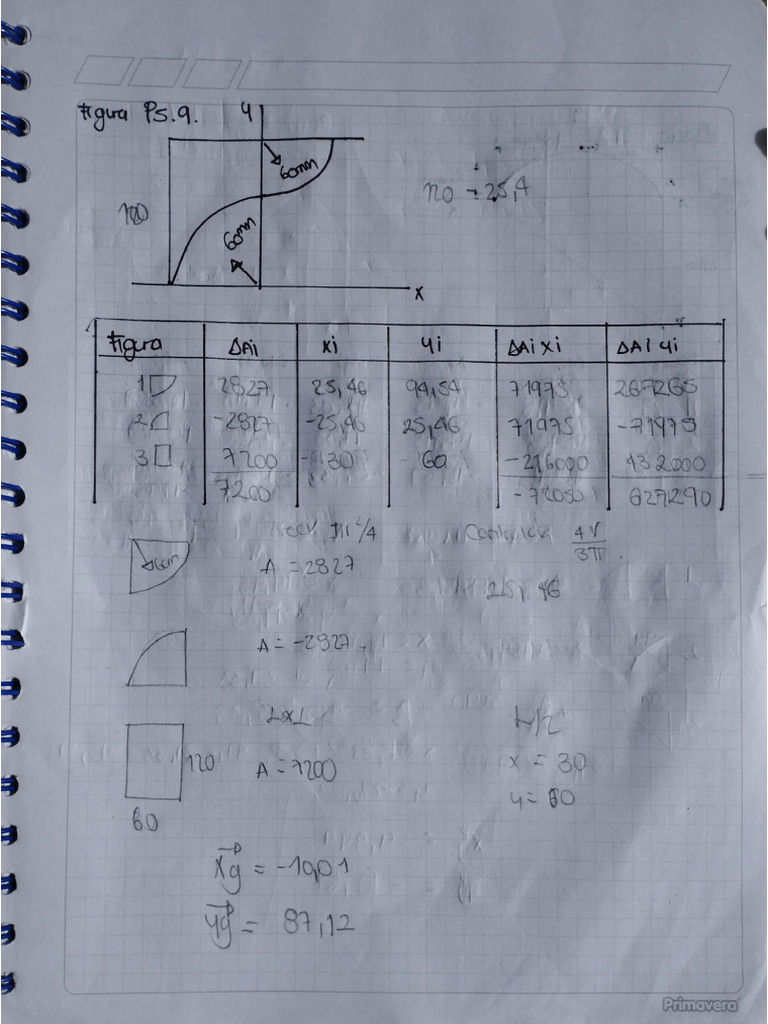 Figura P5.9. y
60mm
120
120 - 25,4
60mm
x
Figura ΔAi xi yi ΔAi xi ΔAi yi
1 2827 25,46 94,54 71975 267265
2 -2827 -25,46 25,46 71975 -71975
3 7200 -30 60 -216000 432000
7200 -72050 627290
πr²/4 4r/3π
60mm A = 2827
25,46
A = -2827
LxL L/2
120 A = 7200 x = 30
y = 60
60
xg = -10,01
yg = 87,12
Primavera